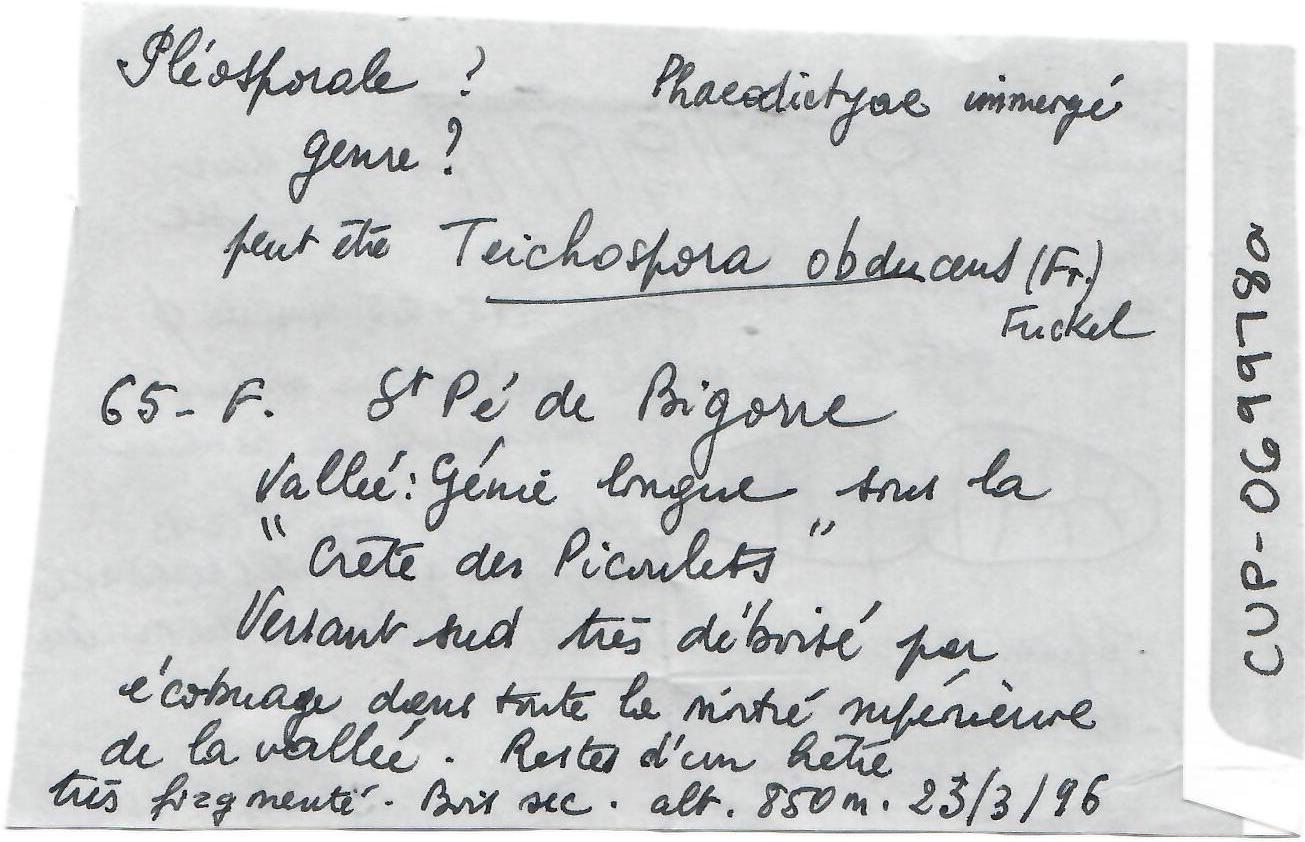 Pléosporale ? Phaeodictyae immergé
genre ?
peut être Teichospora obducens (Fr.)
Fuckel
65 - F. St Pé de Bigorre
Vallée : Génie longue sous la
"Crête des Picoulets"
Versant sud très déboisé par
écobuage dans toute la moitié supérieure
de la vallée. Restes d'un hêtre
très fragmenté. Bois sec. alt. 850 m. 23/3/96
CUP-069978a